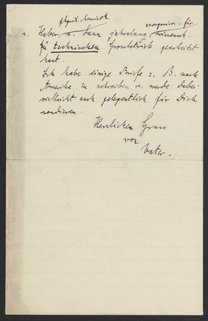 u. Haber u. dann jahrelang
zu technischem gearbeitet
hast
Ich habe einige Briefe z. B. nach
Amerika zu schreiben u. werde dabei
vielleicht auch gelegentlich für Dich
sondieren.
Herzlichen Gruss
von
Vater.